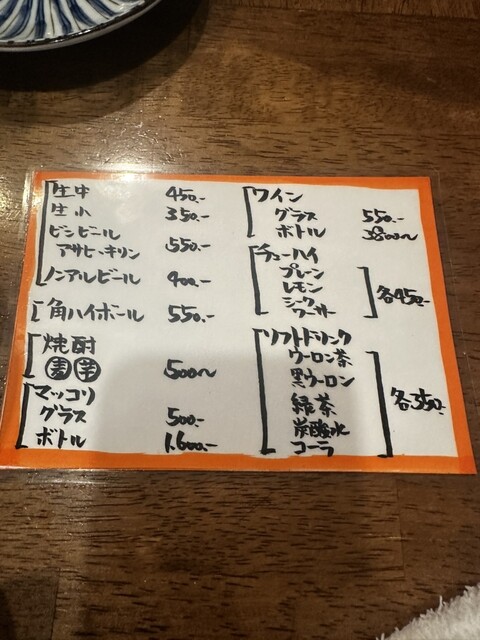 生中 450.-
生小 350.-
ビンビール
アサヒ・キリン 550.-
ノンアルビール 400.-
角ハイボール 550.-
焼酎
麦 芋 500〜
マッコリ
グラス 500.-
ボトル 1,600.-
ワイン
グラス 550.-
ボトル 3800〜
チューハイ
プレーン
レモン
シークワーサー
各450-
ソフトドリンク
ウーロン茶
黒ウーロン
緑茶
炭酸水
コーラ
各350.-